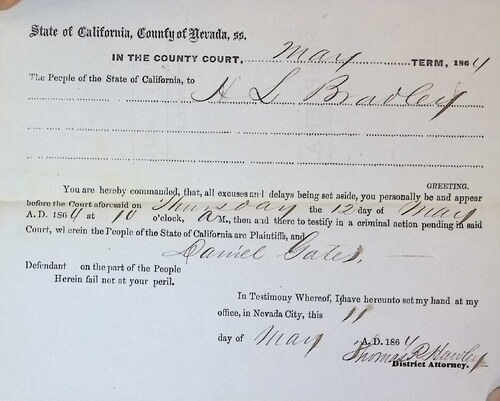 State of California, County of Nevada, ss.
IN THE COUNTY COURT, May TERM, 1864
The People of the State of California, to H L Bradley
GREETING.
You are hereby commanded, that, all excuses and delays being set aside, you personally be and appear
before the Court aforesaid on Thursday the 12 day of May
A. D. 1864 at 10 o'clock, A M., then and there to testify in a criminal action pending in said
Court, wherein the People of the State of California are Plaintiffs, and
Daniel Gates,
Defendant on the part of the People
Herein fail not at your peril.
In Testimony Whereof, I have hereunto set my hand at my
office, in Nevada City, this 11
day of May A. D. 1864
Thomas P. Hawley
District Attorney.